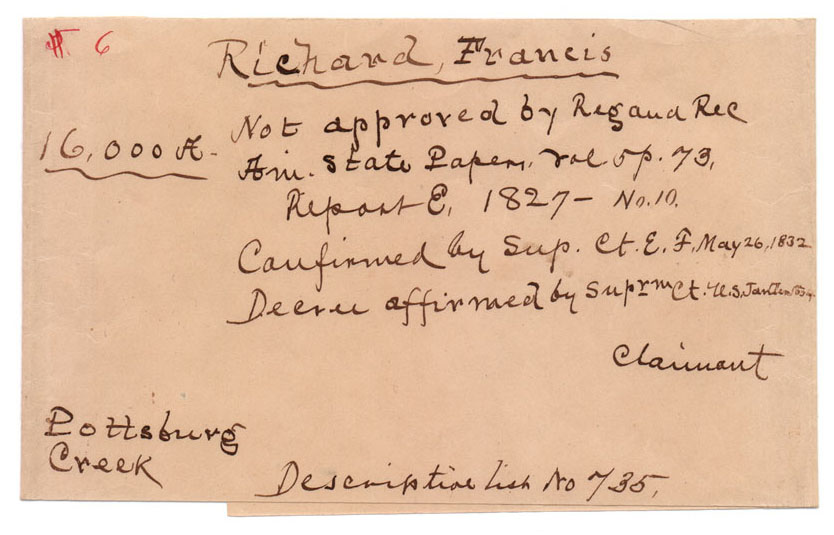 6
Richard, Francis
16,000 A-
Not approved by Reg and Rec
Am. State Papers, vol 5 p. 73,
Report E, 1827- No. 10.
Confirmed by Sup. Ct. E. F. May 26, 1832
Decree affirmed by Suprm Ct. U.S. Jan
Claimant
Pottsburg
Creek
Descriptive list No 735.